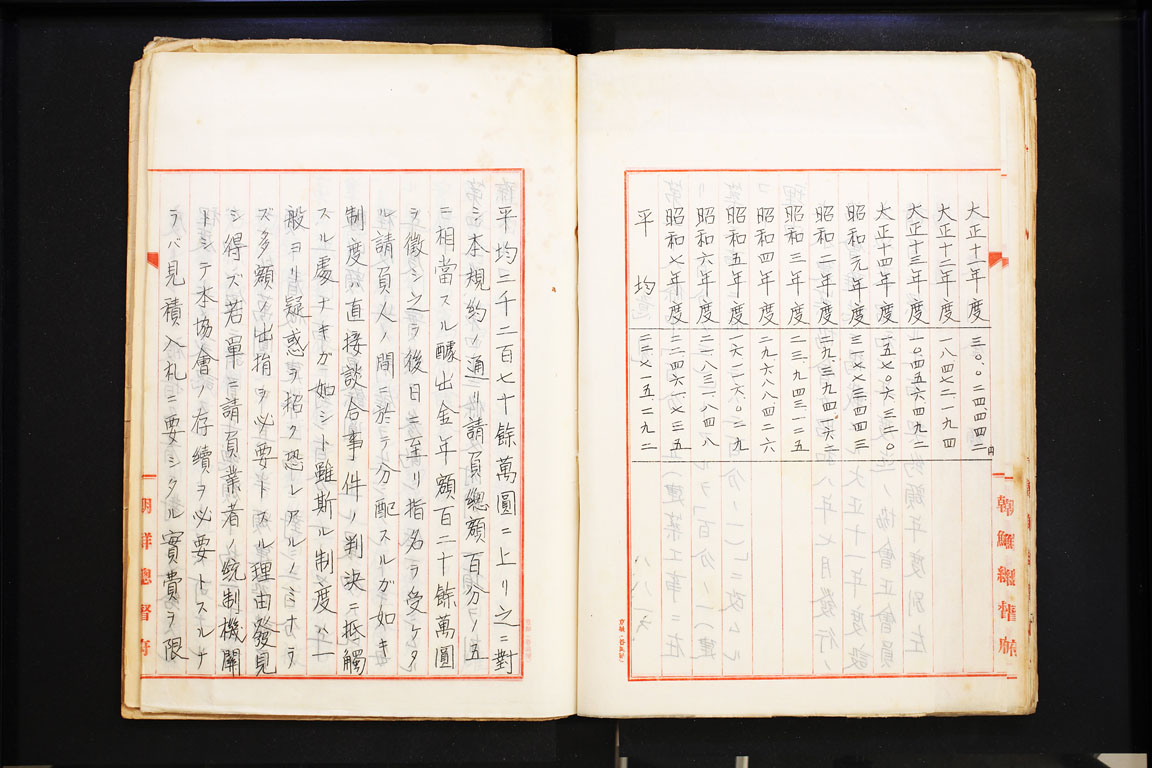 大正十一年度 三〇、〇二四、四四二円
大正十二年度 一八四七二、一九四
大正十三年度 一〇、四五六、四九二
大正十四年度 一五七〇六、三二〇
昭和元年度 三一七七三、四四三
昭和二年度 二九、三九四、一六二
昭和三年度 二三、九四三、一二五
昭和四年度 二九六八八、四二六
昭和五年度 一六一二六、〇二九
昭和六年度 二一、八三一、八四八
昭和七年度 二二四六一、七三五
平均 二二七一五、二九二
平均二千二百七十餘萬圓ニ上リ之ニ對
シ本規約ノ通リ請負總額百分ノ五
ニ相當スル醵出金年額百二十餘萬圓
ヲ徴シ之ヲ後日ニ至リ指名ヲ受ケタ
ル請負人ノ間ニ於テ分配スルガ如キ
制度ハ直接談合事件ノ判決ニ抵觸
スル處ナキガ如シト雖斯ル制度ハ一
般ヨリ疑惑ヲ招ク恐レアルノミナラ
ズ多額ノ出捐ヲ必要トスル理由發見
シ得ズ若單ニ請負業者ノ統制機關
トシテ本協會ノ存續ヲ必要トスルナ
ラバ見積入札ニ要シタル實費ヲ限
朝鮮總督府